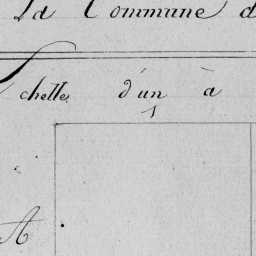 la Commune d
Echelle d'un à
1
A